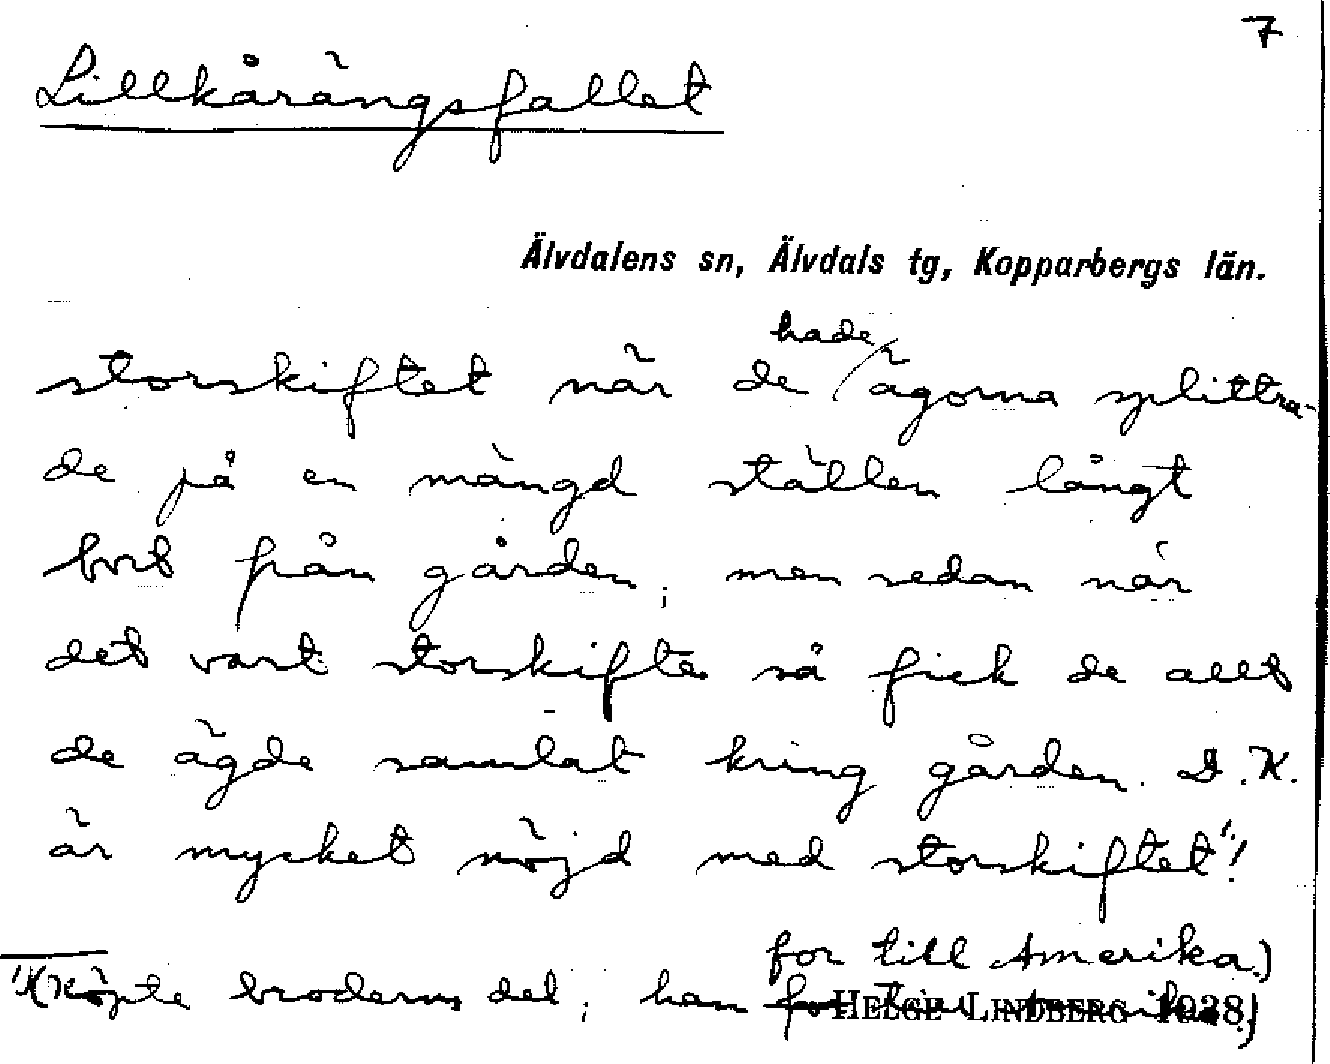 7
Lillkårängsfallet
Älvdalens sn, Älvdals tg, Kopparbergs län.
hade
storskiftet när de ägorna splittra-
de på en mängd ställen långt
bort från gården; men sedan när
det vart storskifte så fick de allt
de ägde samlat kring gården. D.K.
är mycket nöjd med storskiftet"!
for till Amerika.)
1) (Köpte broderns del; han for till Amerika.)
HELGE LINDBERG 1938